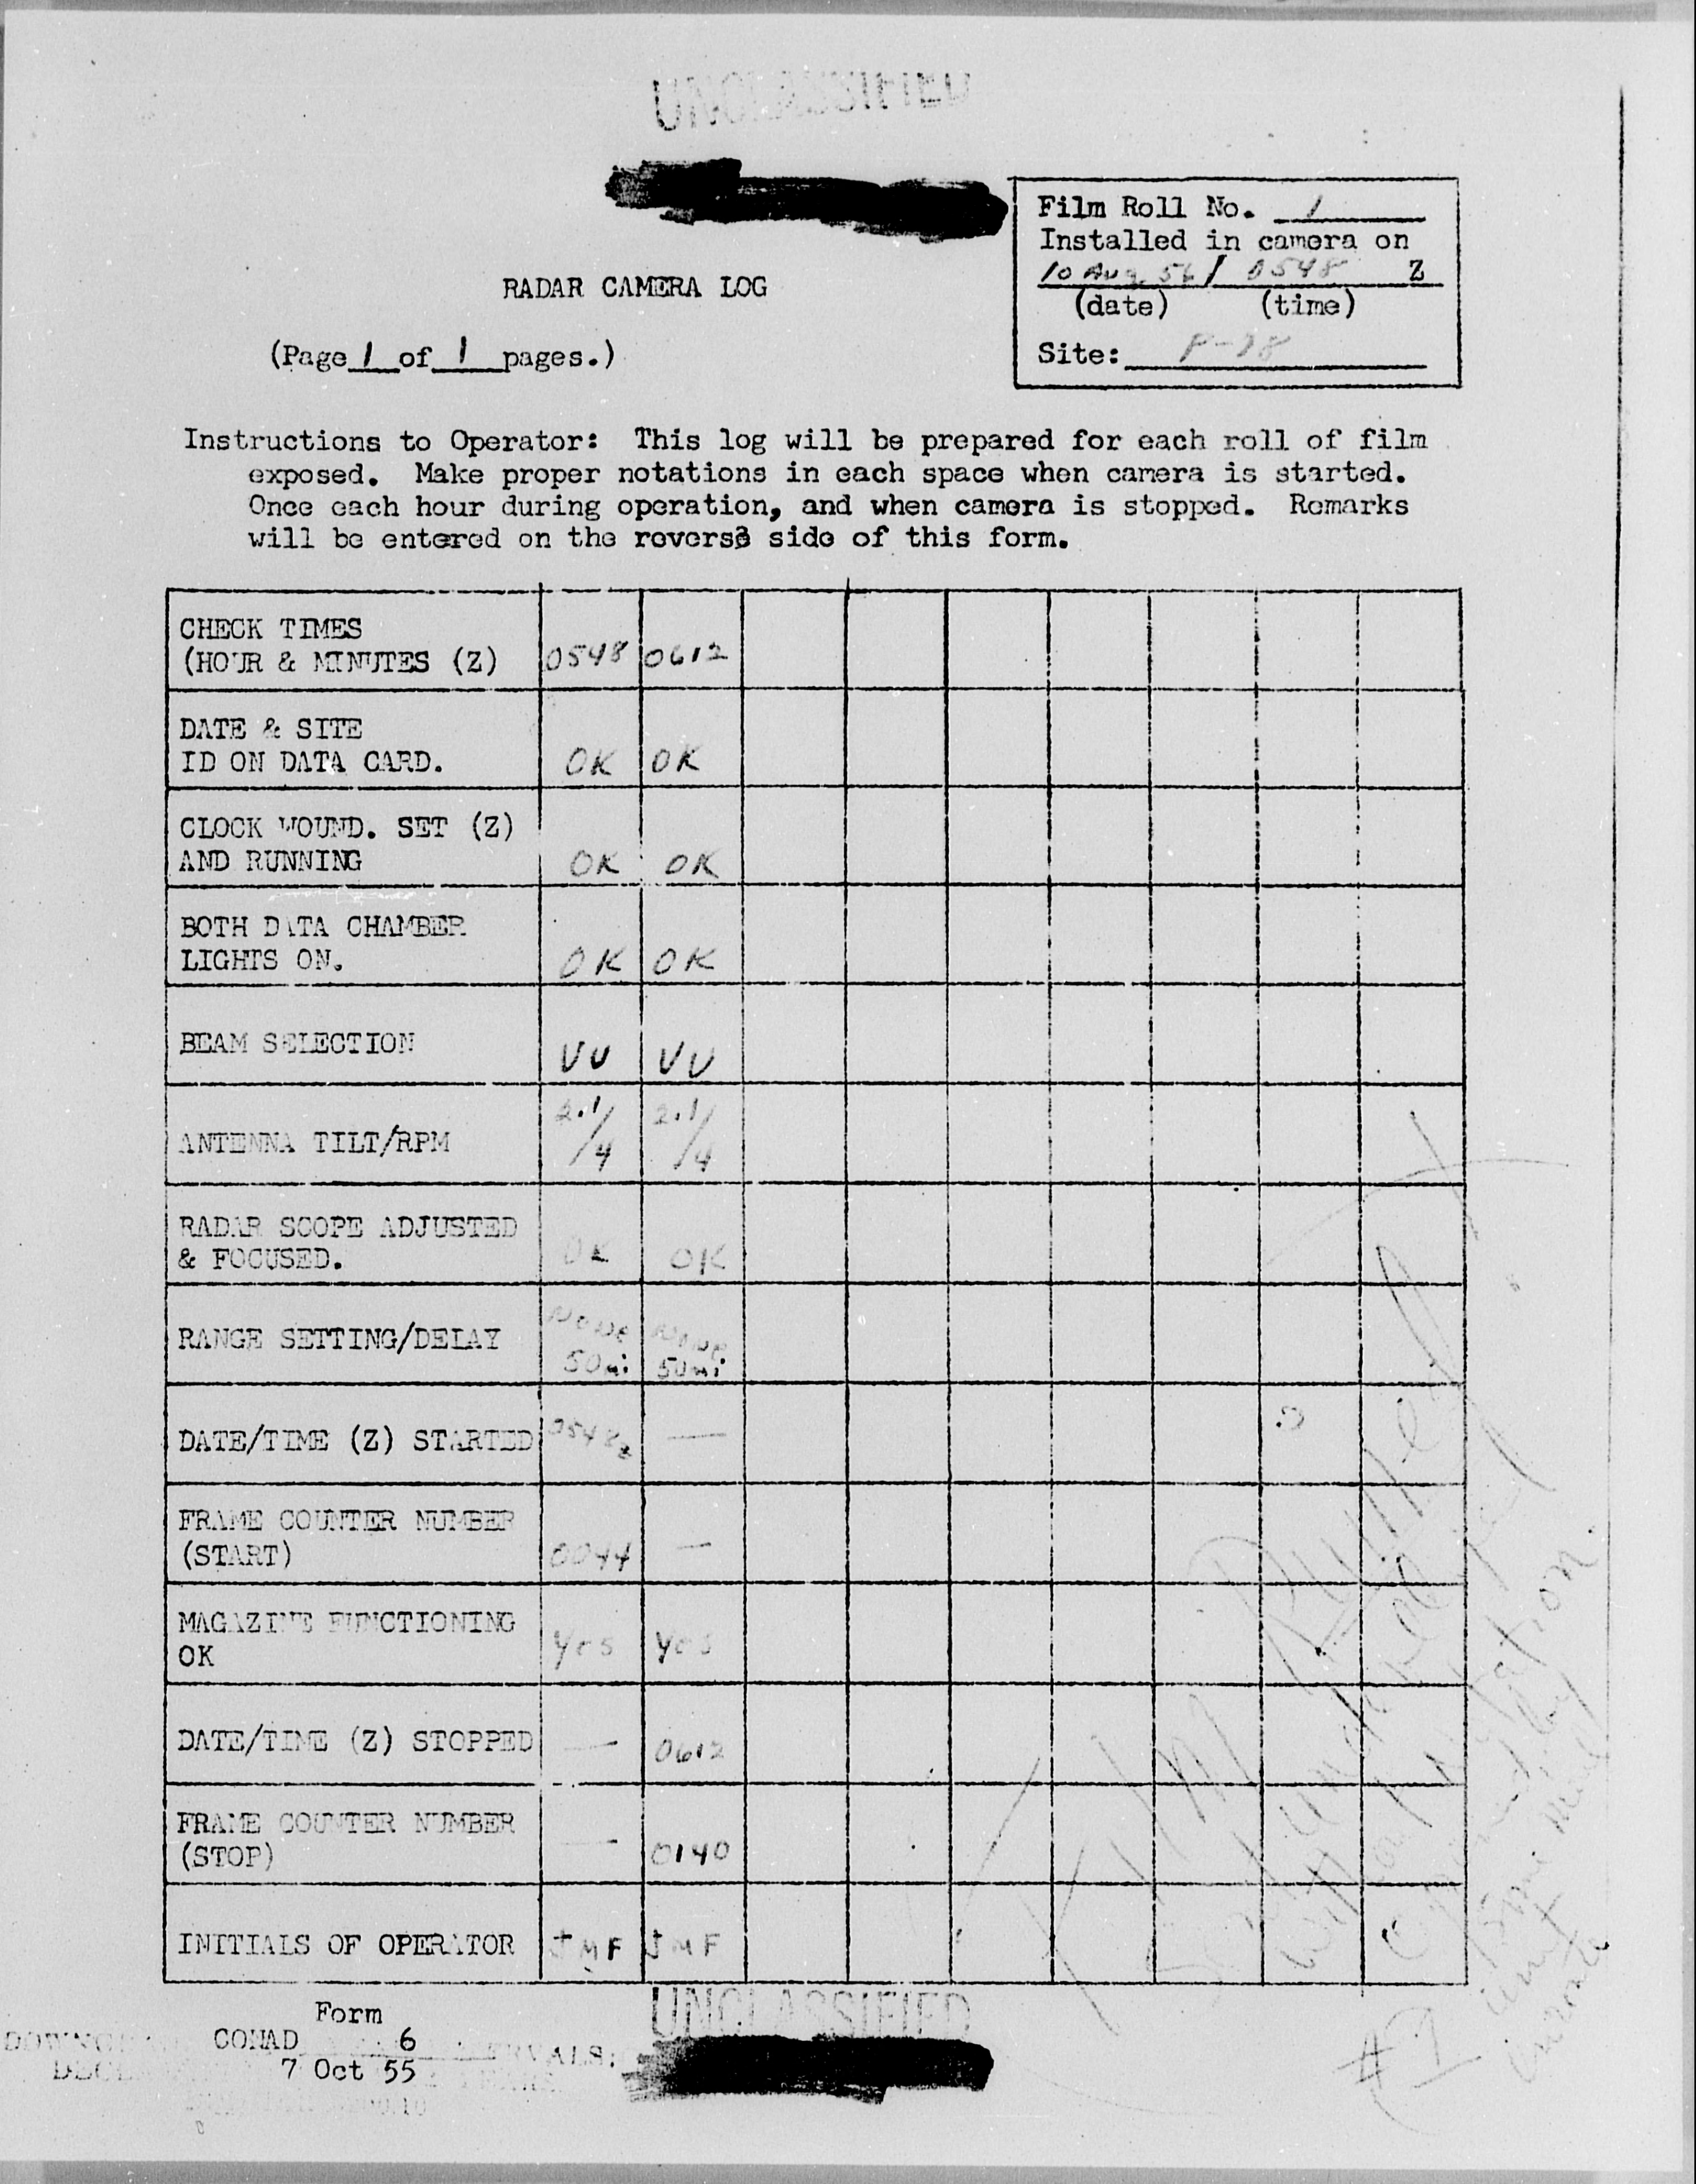 UNCLASSIFIED
Film Roll No. 1
Installed in camera on
10 Aug 56 / 0548 Z
(date) (time)
Site:
RADAR CAMERA LOG
(Page 1 of 1 pages.)
Instructions to Operator: This log will be prepared for each roll of film
exposed. Make proper notations in each space when camera is started.
Once each hour during operation, and when camera is stopped. Remarks
will be entered on the reverse side of this form.
CHECK TIMES
(HOUR & MINUTES (Z) 0548 0612
DATE & SITE
ID ON DATA CARD. OK OK
CLOCK WOUND. SET (Z)
AND RUNNING OK OK
BOTH DATA CHAMBER
LIGHTS ON. OK OK
BEAM SELECTION VU VU
ANTENNA TILT/RPM 2.1/4 2.1/4
RADAR SCOPE ADJUSTED
& FOCUSED. OK OK
RANGE SETTING/DELAY None None
50mi 50mi
DATE/TIME (Z) STARTED 0548z —
FRAME COUNTER NUMBER
(START) 0044 —
MAGAZINE FUNCTIONING
OK Yes Yes
DATE/TIME (Z) STOPPED — 0612
FRAME COUNTER NUMBER
(STOP) — 0140
INITIALS OF OPERATOR JMF JMF
Form
CONAD 6
7 Oct 55
UNCLASSIFIED
#1